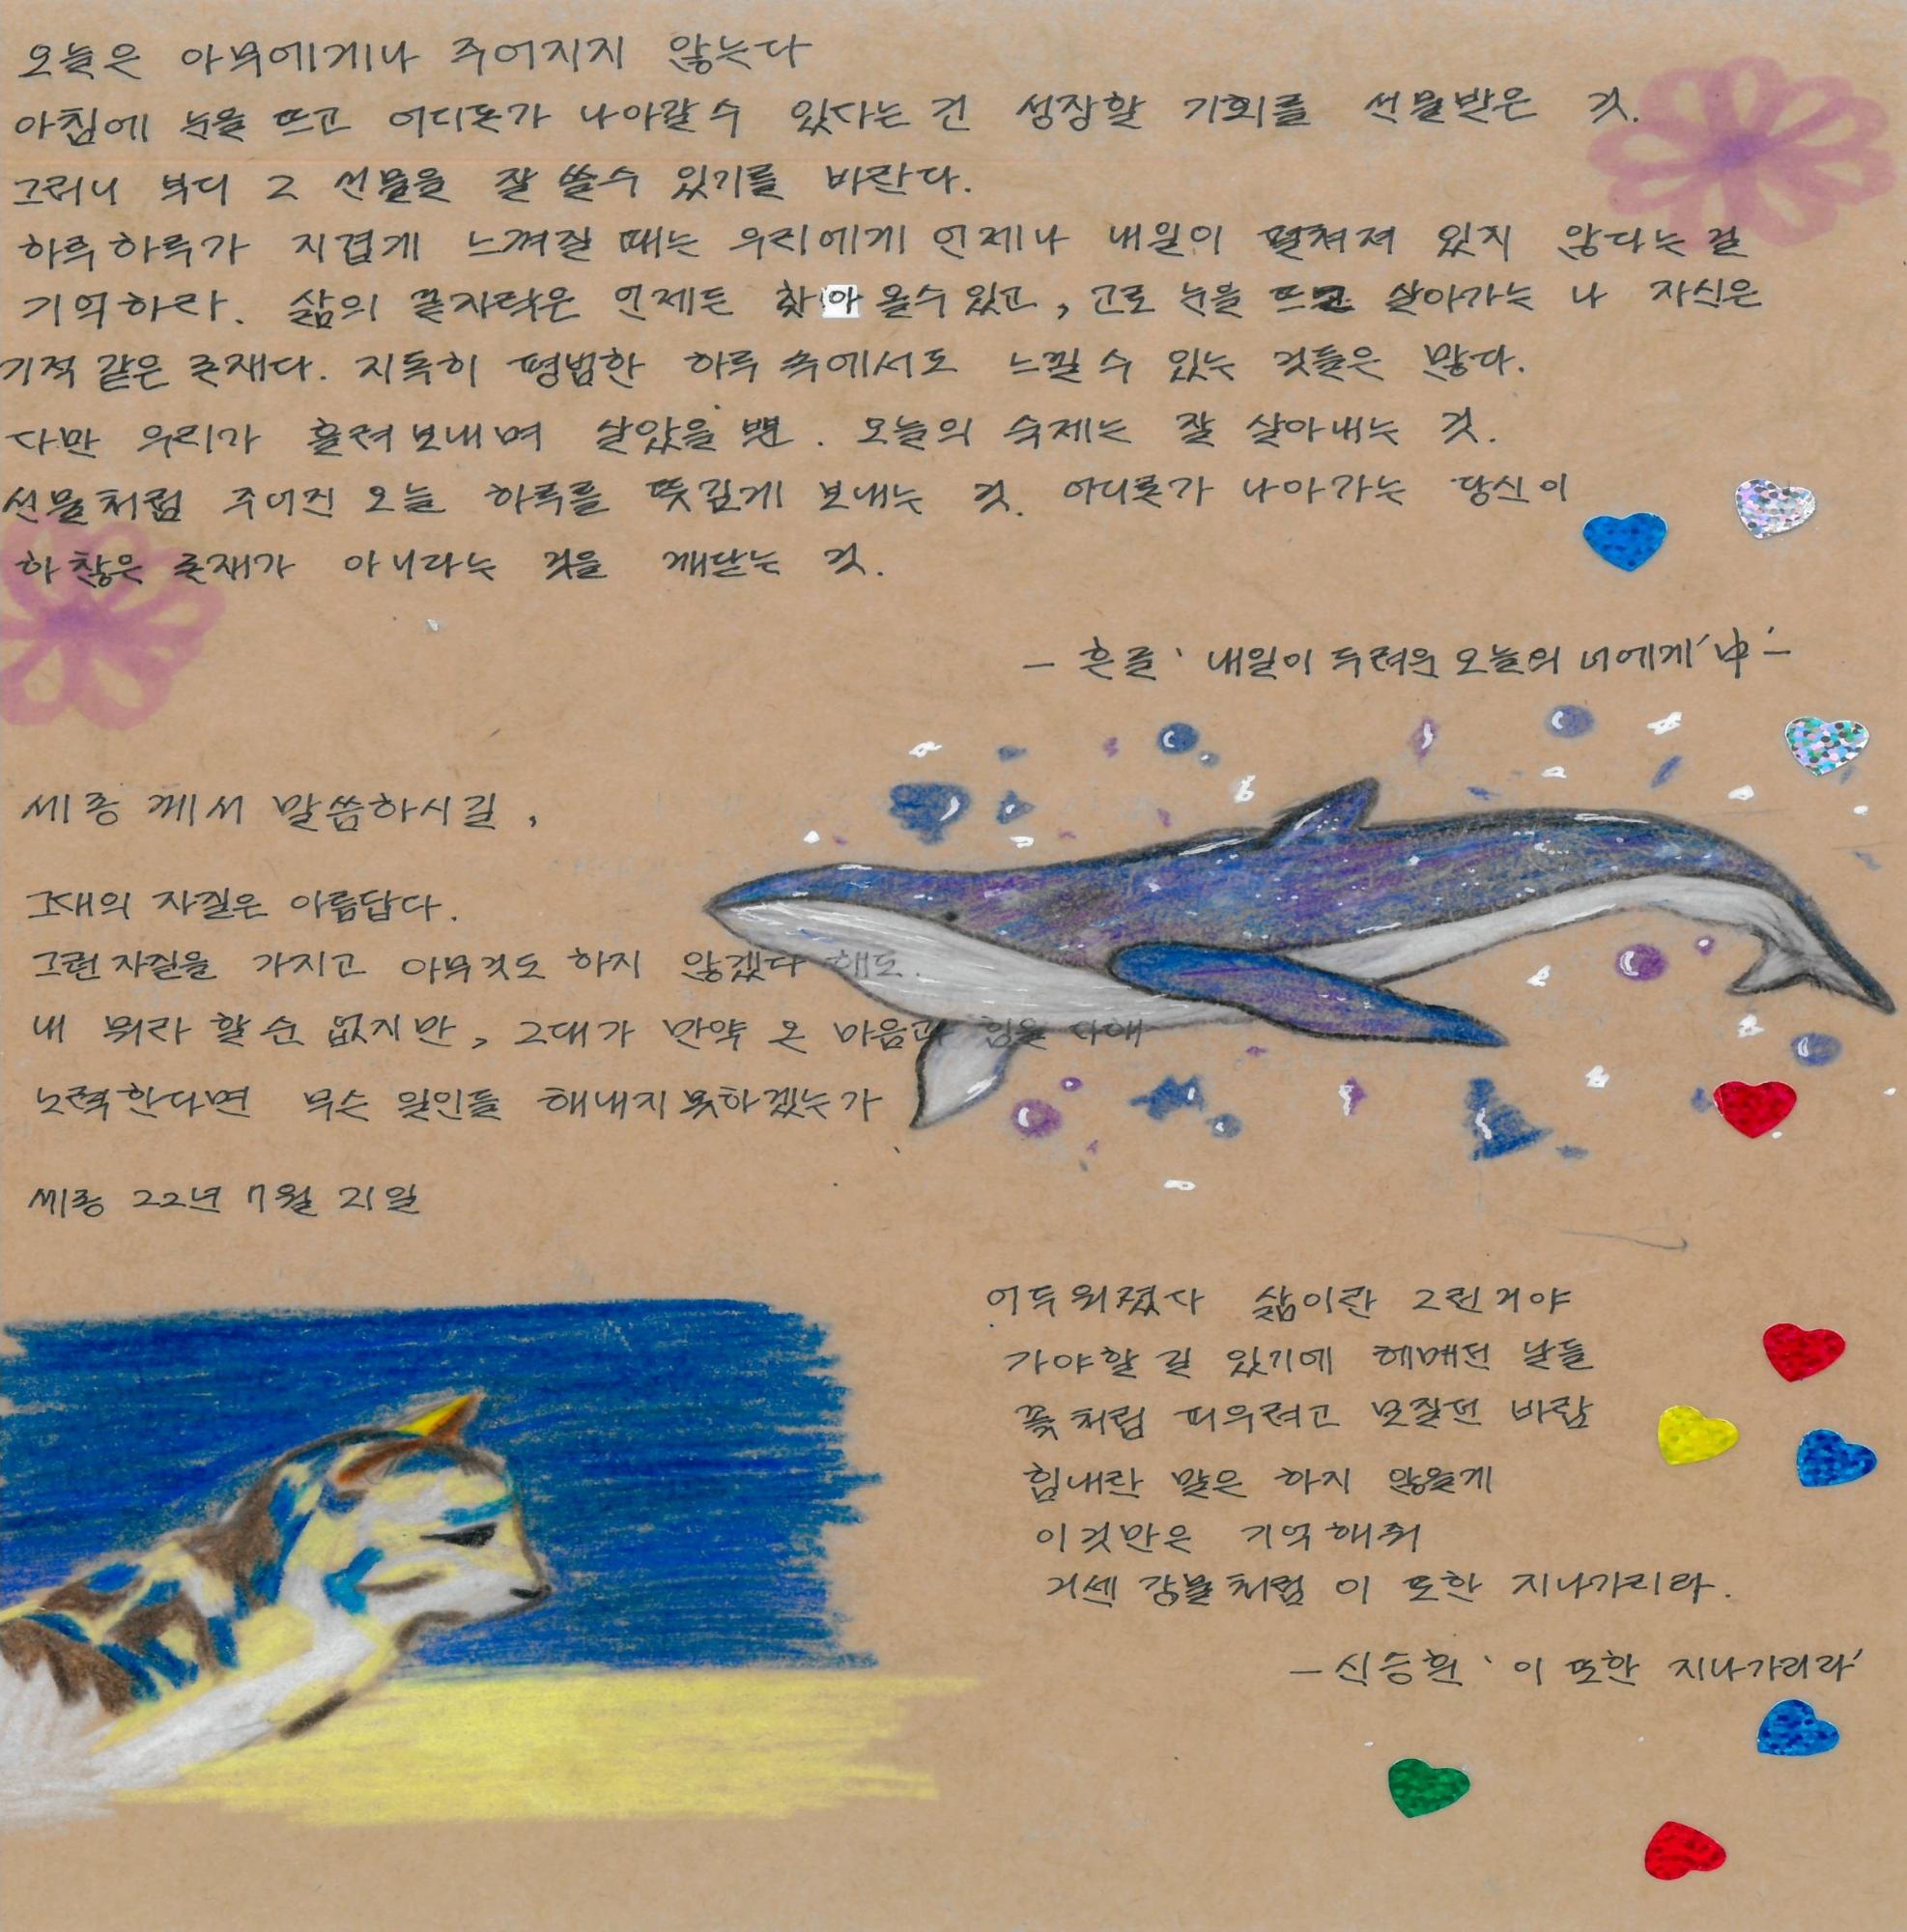 오늘은 아무에게나 주어지지 않는다
아침에 눈을 뜨고 어디론가 나아갈 수 있다는 건 성장할 기회를 선물받은 것.
그러니 부디 그 선물을 잘 쓸 수 있기를 바란다.
하루하루가 지겹게 느껴질 때는 우리에게 언제나 내일이 펼쳐져 있지 않다는 걸
기억하라. 삶의 끝자락은 언제든 찾아 올 수 있고, 고로 눈을 뜨고 살아가는 나 자신은
기적 같은 존재다. 지독히 평범한 하루 속에서도 느낄 수 있는 것들은 많다.
다만 우리가 흘려보내며 살았을 뿐. 오늘의 숙제는 잘 살아내는 것.
선물처럼 주어진 오늘 하루를 뜻깊게 보내는 것. 어디론가 나아가는 당신이
하찮은 존재가 아니라는 것을 깨닫는 것.
- 흔글 '내일이 두려운 오늘의 너에게' 中 -
세종께서 말씀하시길,
그대의 자질은 아름답다.
그런 자질을 가지고 아무것도 하지 않겠다 해도.
내 뭐라 할 순 없지만, 그대가 만약 온 마음과 힘을 다해
노력한다면 무슨 일인들 해내지 못하겠는가
세종 22년 7월 21일
어두워졌다 삶이란 그런거야
가야할 길 있기에 헤매던 날들
꽃처럼 피우려고 모질던 바람
힘내란 말은 하지 않을게
이것만은 기억해줘
거센 강물처럼 이 또한 지나가리라.
- 신승훈 '이 또한 지나가리라'